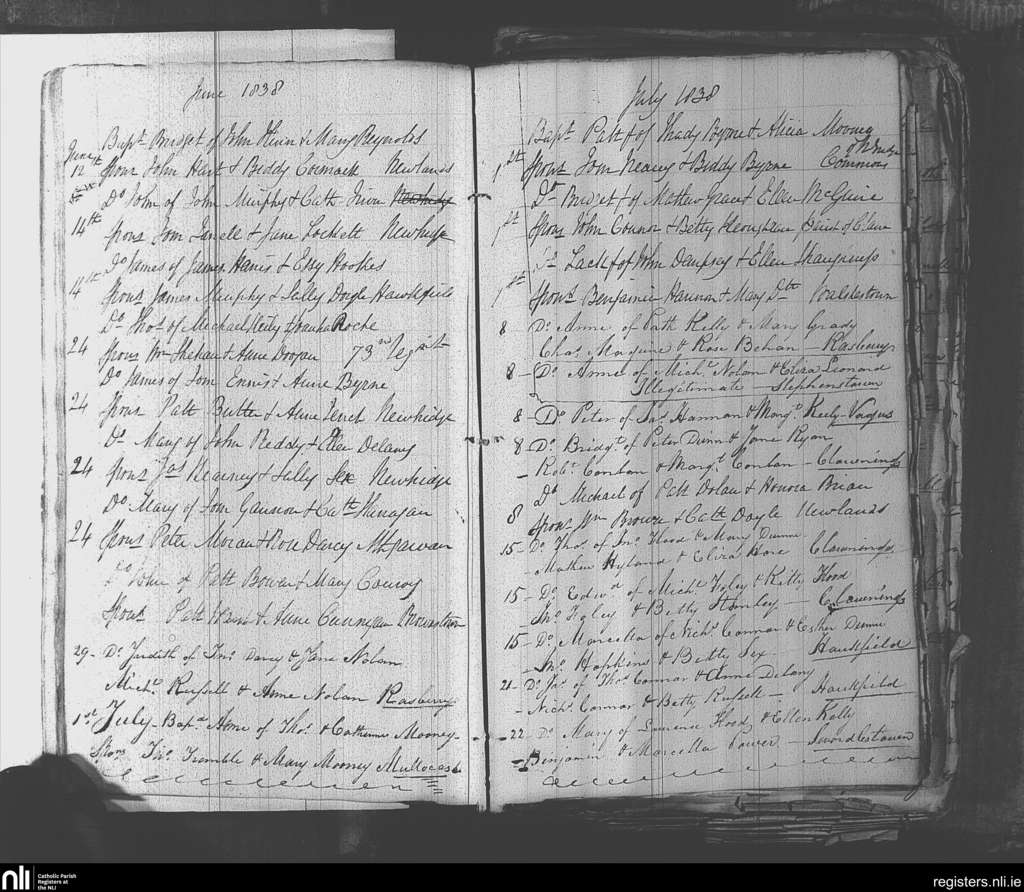 June 1838
Bapt Bridget of John Flinn & Mary Reynolds
June 12th Spons John Hart & Biddy Cormack Newlands
Do John of John Murphy & Cath
14th Spons Tom & Jane Lockett Newbridge
Do James of James Harris & Essy Hookes
14th Spons James Murphy & Sally Doyle Hawkfield
Do Thos of Michael Kiely & Roche
24 Spons Wm Shehan & Anne Doogan 73rd Regmt
Do James of Tom Ennis & Anne Byrne
24 Spons Patt Butler & Anne Newbridge
Do Mary of John Reddy & Ellen Delany
24 Spons Jos Kearney & Sally Newbridge
Do Mary of Tom Gannon & Cath Finagan
24 Spons Peter Moran & Rose Darcy
Do John of Patt Bowen & Mary Conroy
Spons Patt & Anne Brownstown
29 - Do Judith of Jno Darcy & Jane Nolan
Michl Russell & Anne Nolan Rasberry
1st July - Bapd Anne of Thos & Catherine Mooney -
Spons Jno Trimble & Mary Mooney
July 1838
Bapt Patt of Thady Byrne & Alicia Mooney
1st Spons Tom Neavey & Biddy Byrne Commons
Do Bridget of Mathew Grace & Ellen McGuire
1st Spons John Connor & Betty parish of Clane
of John Dempsey & Ellen
1st Spons Benjamin Hannon & Mary Walshestown
8 Do Anne of Path Kelly & Mary Grady
Chas Maguire & Rose Behan - Rasberry
8 - Do Anne of Michl Nolan & Eliza Leonard
Illegitimate - Stephenstown
8 Do Peter of Jas Hannan & Margt Keely -
8 - Do Bridgt of Peter Dunn & Jane Ryan
- Robt Conlan & Margt Conlan - Clownings
8 Do Michael of Patt Dolan & Honora Brian
Spons Wm Browne & Cath Doyle Newlands
15 - Do Thos of Jno Flood & Mary Dunne
- Mathew Hyland & Eliza Hore Clownings
15 - Do Edwd of Michl Foley & Kitty Flood
- Thos Foley & Betty Stanley - Clownings
15 - Do Marcella of Nichs Connor & Esther Dunne
- Thos Hopkins & Betty Sex - Hawkfield
21 - Do Jas of Thos Connor & Anne Delany
- Nichs Connor & Betty Russell - Hawkfield
22 - Do Mary of Laurence Flood & Ellen Kelly
- Benjamin & Marcella Power - Swordlestown
nli Catholic Parish Registers at the NLI
registers.nli.ie